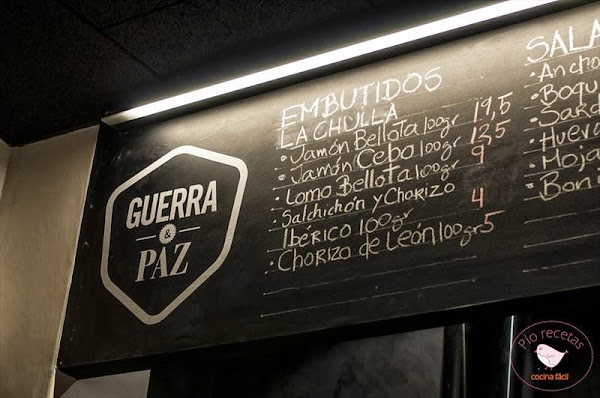 GUERRA
&
PAZ
EMBUTIDOS
LA CHULLA
• Jamón Bellota 100gr 19,5
• Jamón Cebo 100gr 13,5
• Lomo Bellota 100gr 9
• Salchichón y Chorizo
Ibérico 100gr 4
• Chorizo de León 100gr 5
SALA
• Ancho
• Boqu
• Sard
• Hueva
• Moja
• Boni
Pío recetas
cocina fácil